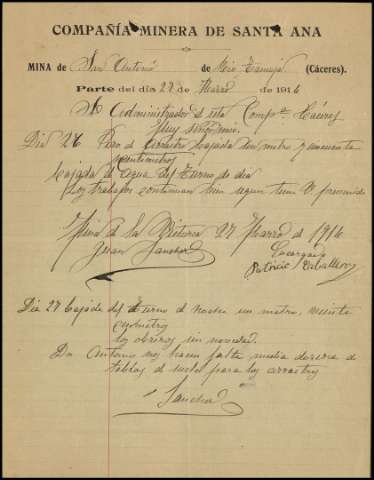 COMPAÑÍA MINERA DE SANTA ANA
MINA de San Antonio de Rio Tamuja (Cáceres).
Parte del día 27 de Marzo de 1916
Sr Administrador de esta Compª Cáceres
Muy señor mio
Día 26 Pozo bajada un metro y cincuenta
centimetros
bajada de agua del turno de dia
Los trabajos continuan bien segun tiene V
Mina de la Victoria 27 Marzo de 1916
Juan Sanchez
Encargado
Patricio Caballero
Dia 27 bajada del turno de noche un metro, veinte
los obreros sin novedad.
Dn Antonio nos hacen falta media docena de
tablas de suelo para los arrastres
Sanchez